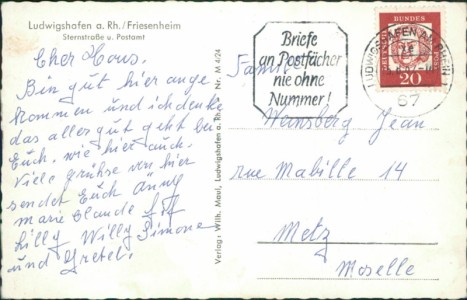 Ludwigshafen a. Rh./Friesenheim
Sternstraße u. Postamt
Cher Hous.
Bin gut hier ange
kommen und ich denke
das alles gut geht bei
Euch, wie hier auch.
Viele grüße von hier
sendet Euch
marie Claude
Lilly Willy Simone
und Gretel.
Verlag: Wilh. Maul, Ludwigshafen a. Rh. Nr. M 4/24
Briefe
an Postfächer
nie ohne
Nummer!
LUDWIGSHAFEN AM RHEIN
67
DEUTSCHE BUNDESPOST
20
Famille
Weinsberg Jean
rue Mabille 14
Metz
Moselle